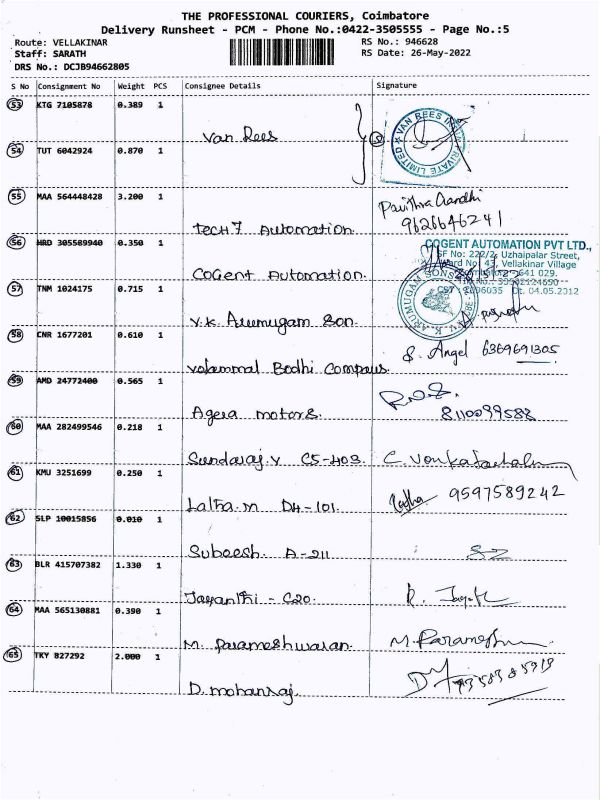 THE PROFESSIONAL COURIERS, Coimbatore
Delivery Runsheet - PCM - Phone No.:0422-3505555 - Page No.:5
Route: VELLAKINAR RS No.: 946628
Staff: SARATH RS Date: 26-May-2022
DRS No.: DCJB94662805
S No Consignment No Weight PCS Consignee Details Signature
53 KTG 7105878 0.389 1
Van Rees
VAN REES PRIVATE LIMITED
54 TUT 6042924 0.870 1
55 MAA 564448428 3.200 1
Tech 7 Automation. Pavithra Gandhi
9626646241
56 HRD 305589940 0.350 1
Cogent Automation.
COGENT AUTOMATION PVT LTD.,
SF No: 222/2, Uzhaipalar Street,
Ward No: 43, Vellakinar Village
641 029.
Dt. 04.05.2012
57 TNM 1024175 0.715 1
V.K. Arumugam Son.
V.K. ARUMUGAM SONS
58 CNR 1677201 0.610 1
Valammal Bodhi Compaus. S. Angel 6369691305
59 AMD 24772400 0.565 1
Agera motors 8110099588
60 MAA 282499546 0.218 1
Sundaraj.v C5-403 C. Venkatachalam
61 KMU 3251699 0.250 1
Latha.m D4-101. Latha 9597589242
62 SLP 10015856 0.010 1
Subeesh. A-211
63 BLR 415707382 1.330 1
Jayanthi - C20.
64 MAA 565130881 0.390 1
M. Parameshwaran. M. Paramesh
65 TKY 827292 2.000 1
D. mohanraj.